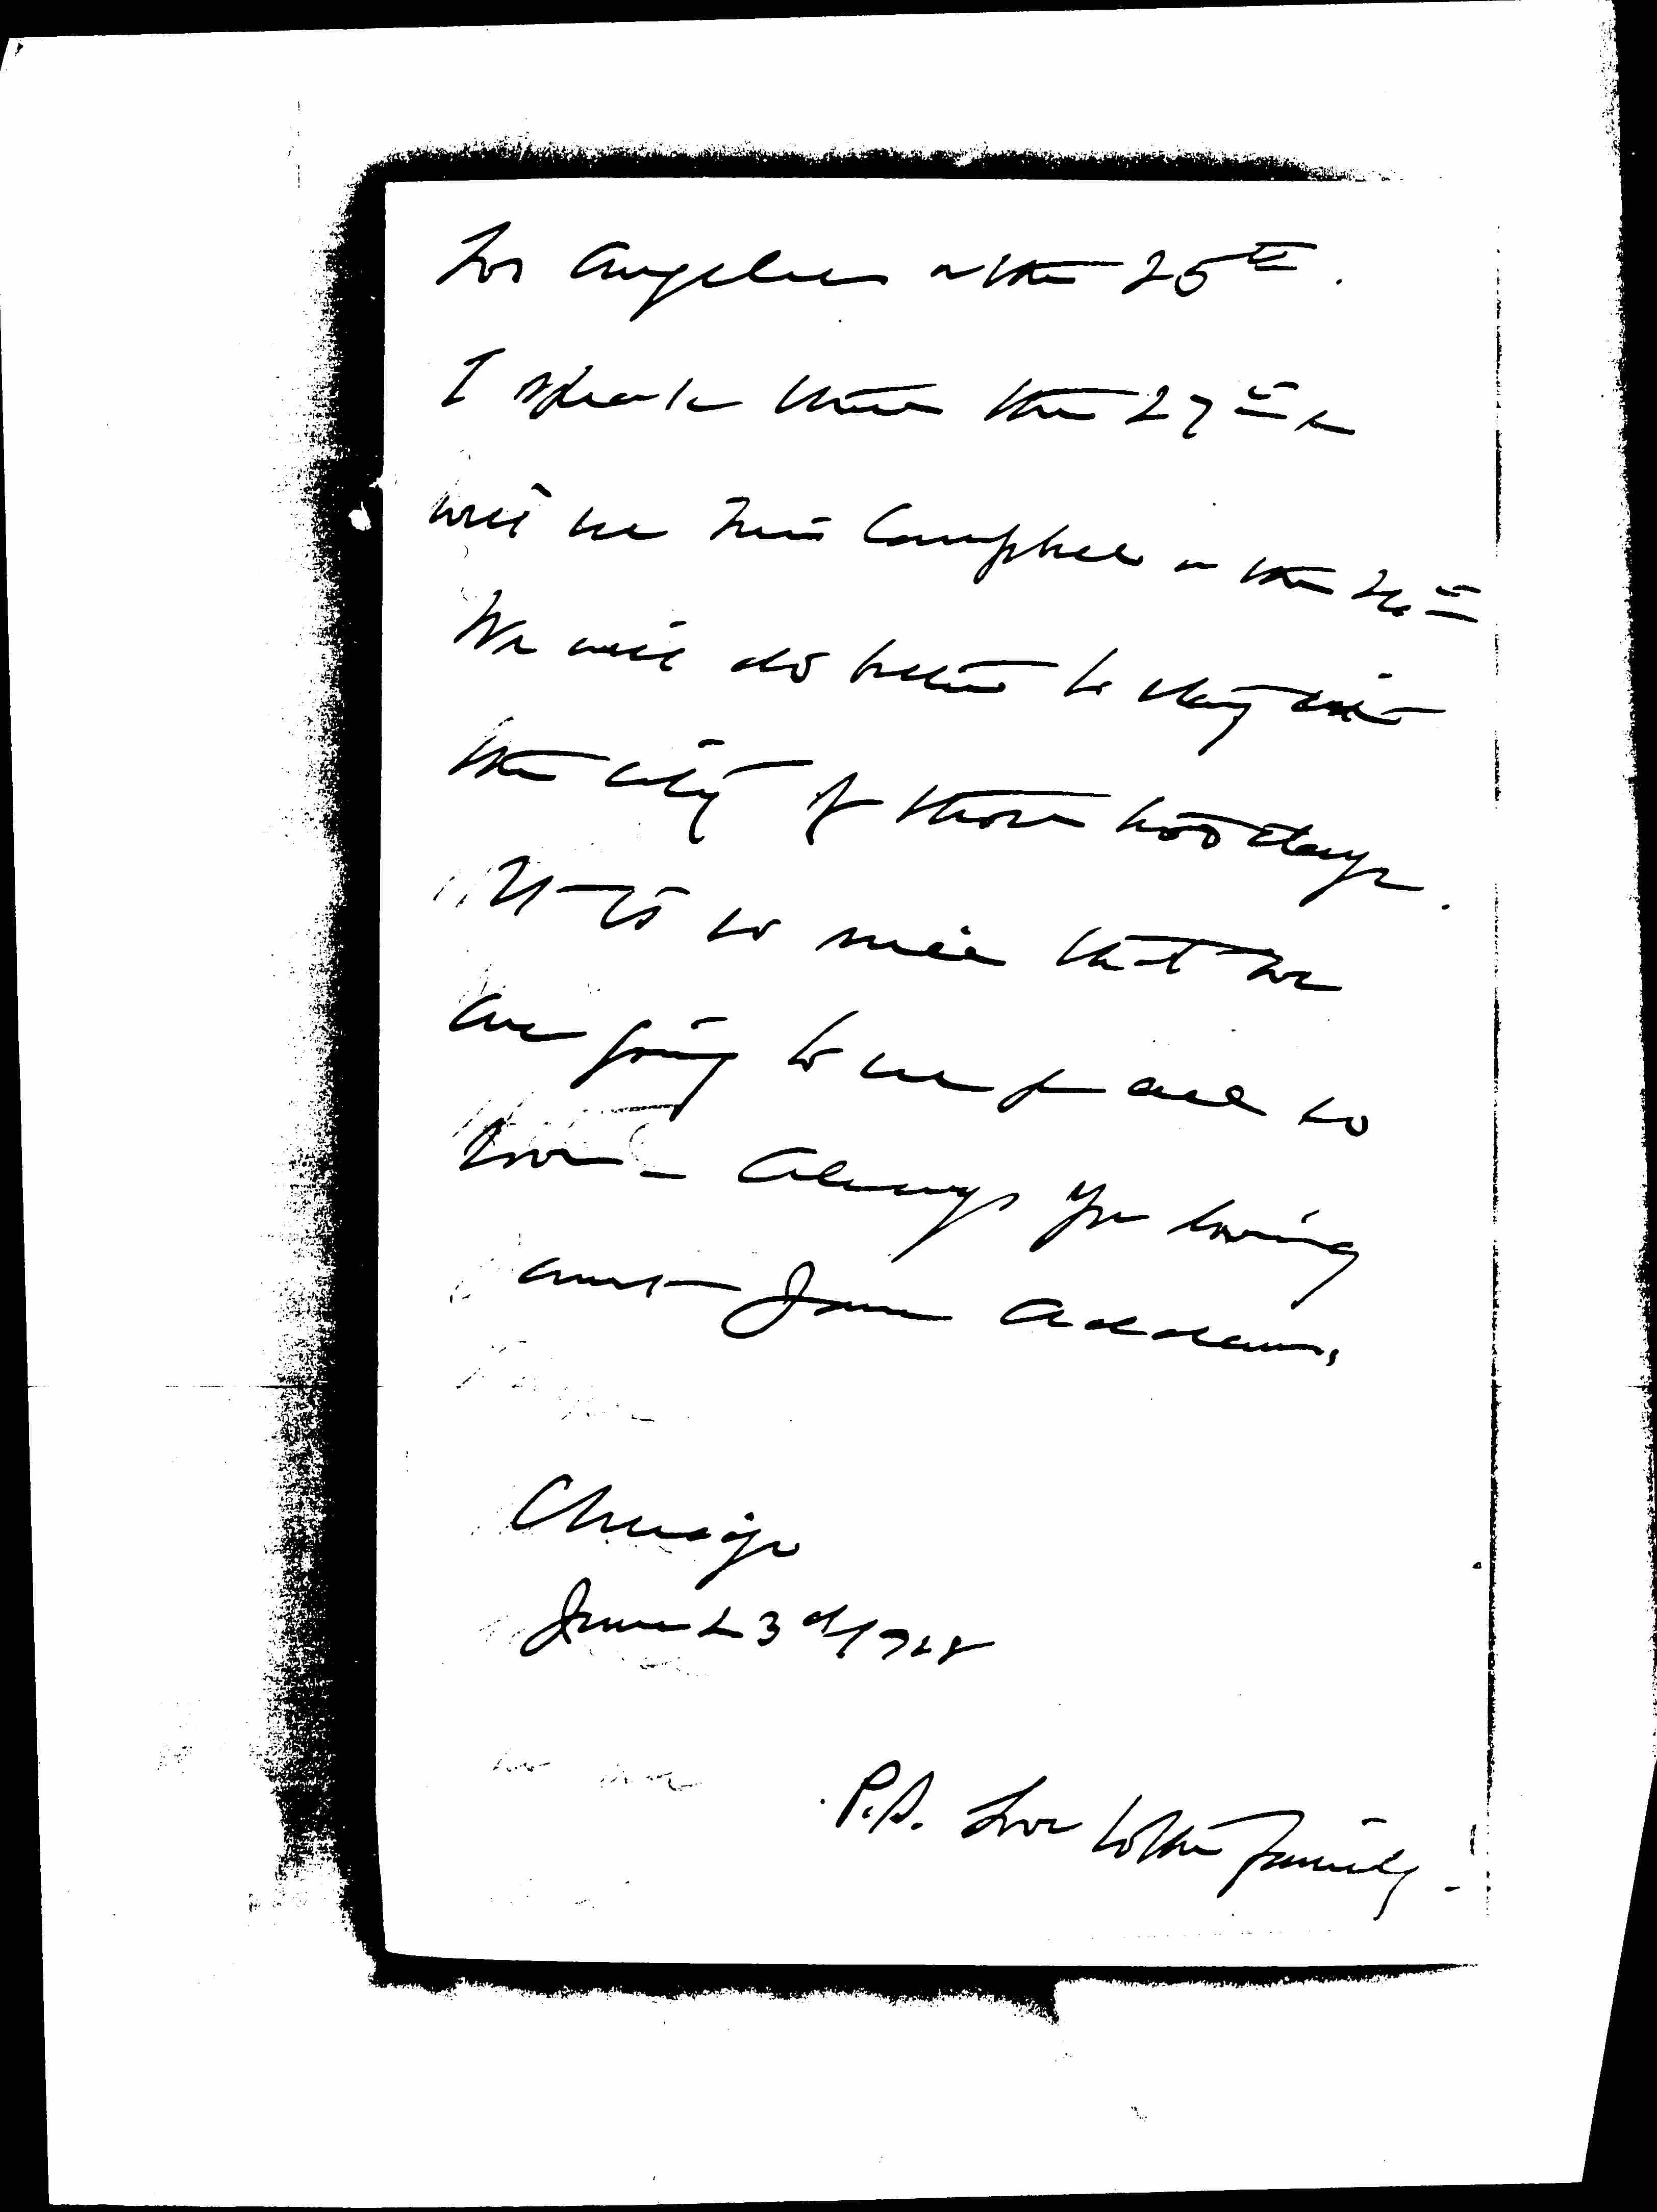 Los Angeles on the 25th.
I speak there the 27th &
will see Miss Campbell on the 26th
We will do better to stay in
the city for those two days.
It is so nice that we
are going to see you all so
soon – Always your loving
aunt Jane Addams.
Chicago
June 23d/1928
P.S. Love to the family –!